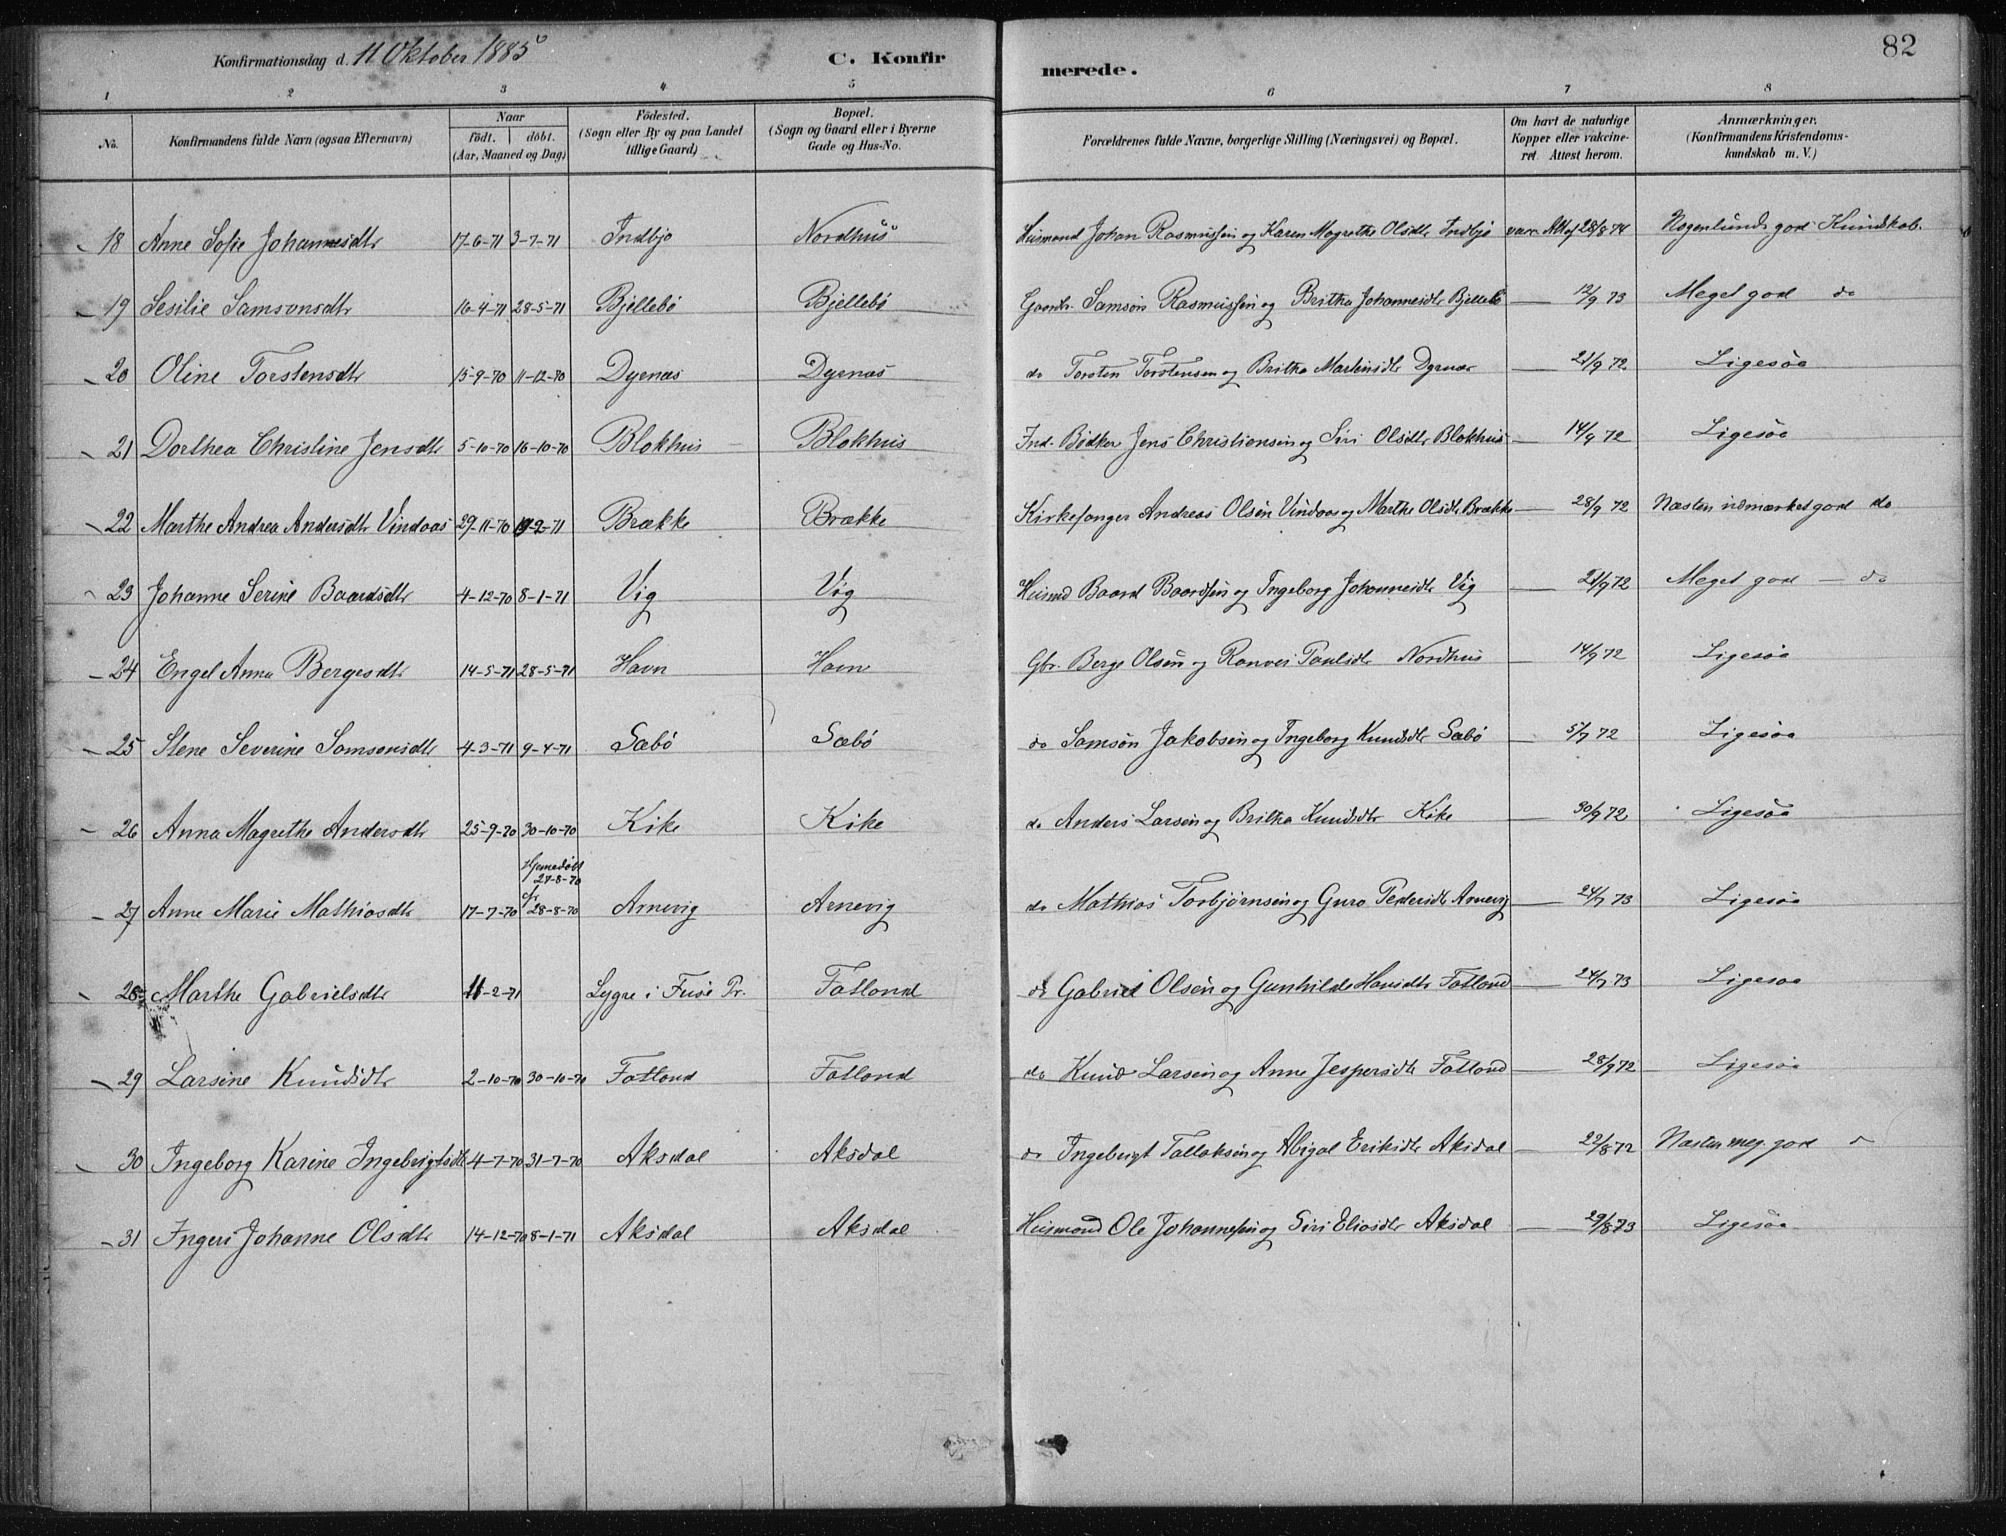 82
Konfirmationsdag d. 11 Oktober 1885 C. Konfirmerede.
1 2 3 4 5 6 7 8
No. Konfirmandens fulde Navn (ogsaa Efternavn) Naar födt. döbt. (Aar, Maaned og Dag) Födested. (Sogn eller By og paa Landet tillige Gaard) Bopæl. (Sogn og Gaard eller i Byerne Gade og Hus-No. Forældrenes fulde Navne, borgerlige Stilling (Næringsvei) og Bopæl. Om havt de naturlige Kopper eller vakcineret. Attest herom. Anmerkninger. (Konfirmandens Kristendomskundskab m. V.)
18 Anne Sofie Johannesdtr 17-6-71 3-7-71 Indbjo Nordhus Husmand Johan Rasmussen og Karen Magrethe Olsdtr Indbjo vacc. Att af 28/8 74 Nogenlunde god Kundskab.
19 Sesilie Samsonsdtr 16-4-71 28-5-71 Bjellebö Bjellebö Gaardbr. Samson Rasmussen og Britha Johannesdtr Bjellebö — 12/9 73 Meget god do
20 Oline Torstensdtr 15-9-70 11-12-70 Dyrnæs Dyrnæs do Torsten Torstensen og Britha Martinsdtr Dyrnæs — 21/9 72 Ligesaa
21 Dorthea Christine Jensdtr 5-10-70 16-10-70 Blokhus Blokhus Ind. Bödker Jens Christiansen og Siri Olsdtr Blokhus — 14/9 72 Ligesaa
22 Marthe Andrea Andersdtr Vindaas 29-11-70 19-2-71 Brække Brække Kirkesanger Andreas Olsen Vindaas og Marthe Olsdtr Brække — 28/9 72 Næsten udmærket god do
23 Johanne Serine Baardsdtr 4-12-70 8-1-71 Vig Vig Husmd Baard Baardsen og Ingeborg Johannesdtr Vig — 21/9 72 Meget god — do
24 Engel Anna Bergesdtr 14-5-71 28-5-71 Havn Havn Gbr. Berge Olsen og Ranvei Paulsdtr Nordhus — 14/9 72 Ligesaa
25 Stene Severine Samsonsdtr 4-3-71 9-4-71 Sæbö Sæbö do Samson Jakobsen og Ingeborg Knudsdtr Sæbö — 5/7 72 Ligesaa
26 Anna Magrethe Andersdtr 25-9-70 30-10-70 Kike Kike do Anders Larsen og Britha Knudsdtr Kike 30/9 72 Ligesaa
27 Anne Marie Mathiasdtr 17-7-70 Hjemedöbt 27-8-70 28-8-70 Arnevig Arnevig do Mathias Torbjørnsen og Guro Pedersdtr Arnevig — 24/7 73 Ligesaa
28 Marthe Gabrielsdtr 11-2-71 Lygre i Fuse Pr. Fatland do Gabriel Olsen og Gunhilde Hansdtr Fatland — 24/7 73 Ligesaa
29 Larsine Knudsdtr 2-10-70 30-10-70 Fatland Fatland do Knud Larsen og Anne Jespersdtr Fatland — 28/9 72 Ligesaa
30 Ingeborg Karine Ingebrigtsdtr 4-7-70 31-7-70 Aksdal Aksdal do Ingebrigt Tallaksen og Abigal Eriksdtr Aksdal — 22/8 72 Næsten meg. god do
31 Ingeri Johanne Olsdtr 14-12-70 8-1-71 Aksdal Aksdal Husmand Ole Johannesen og Siri Eliasdtr Aksdal — 29/8 73 Ligesaa